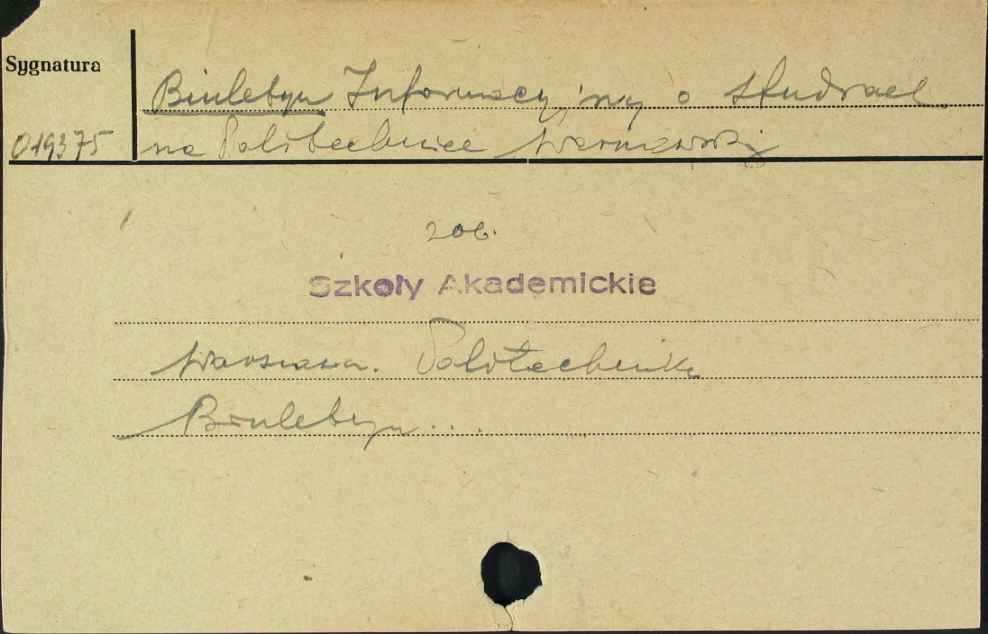 Sygnatura
Biuletyn Informacyjny o studiach
019375 na Politechnice Warszawskiej
zob.
Szkoły Akademickie
Warszawa. Politechnika
Biuletyn...